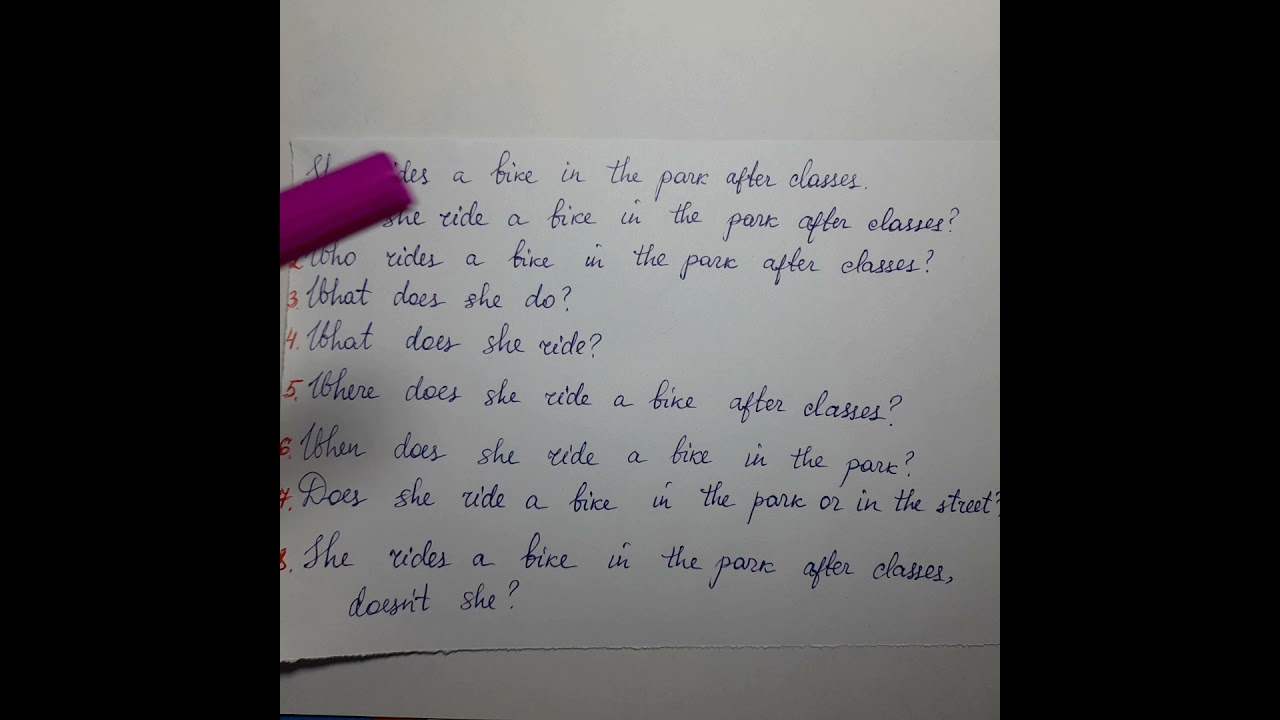 She rides a bike in the park after classes.
she ride a bike in the park after classes?
2. Who rides a bike in the park after classes?
3. What does she do?
4. What does she ride?
5. Where does she ride a bike after classes?
6. When does she ride a bike in the park?
7. Does she ride a bike in the park or in the street?
8. She rides a bike in the park after classes,
doesn't she?